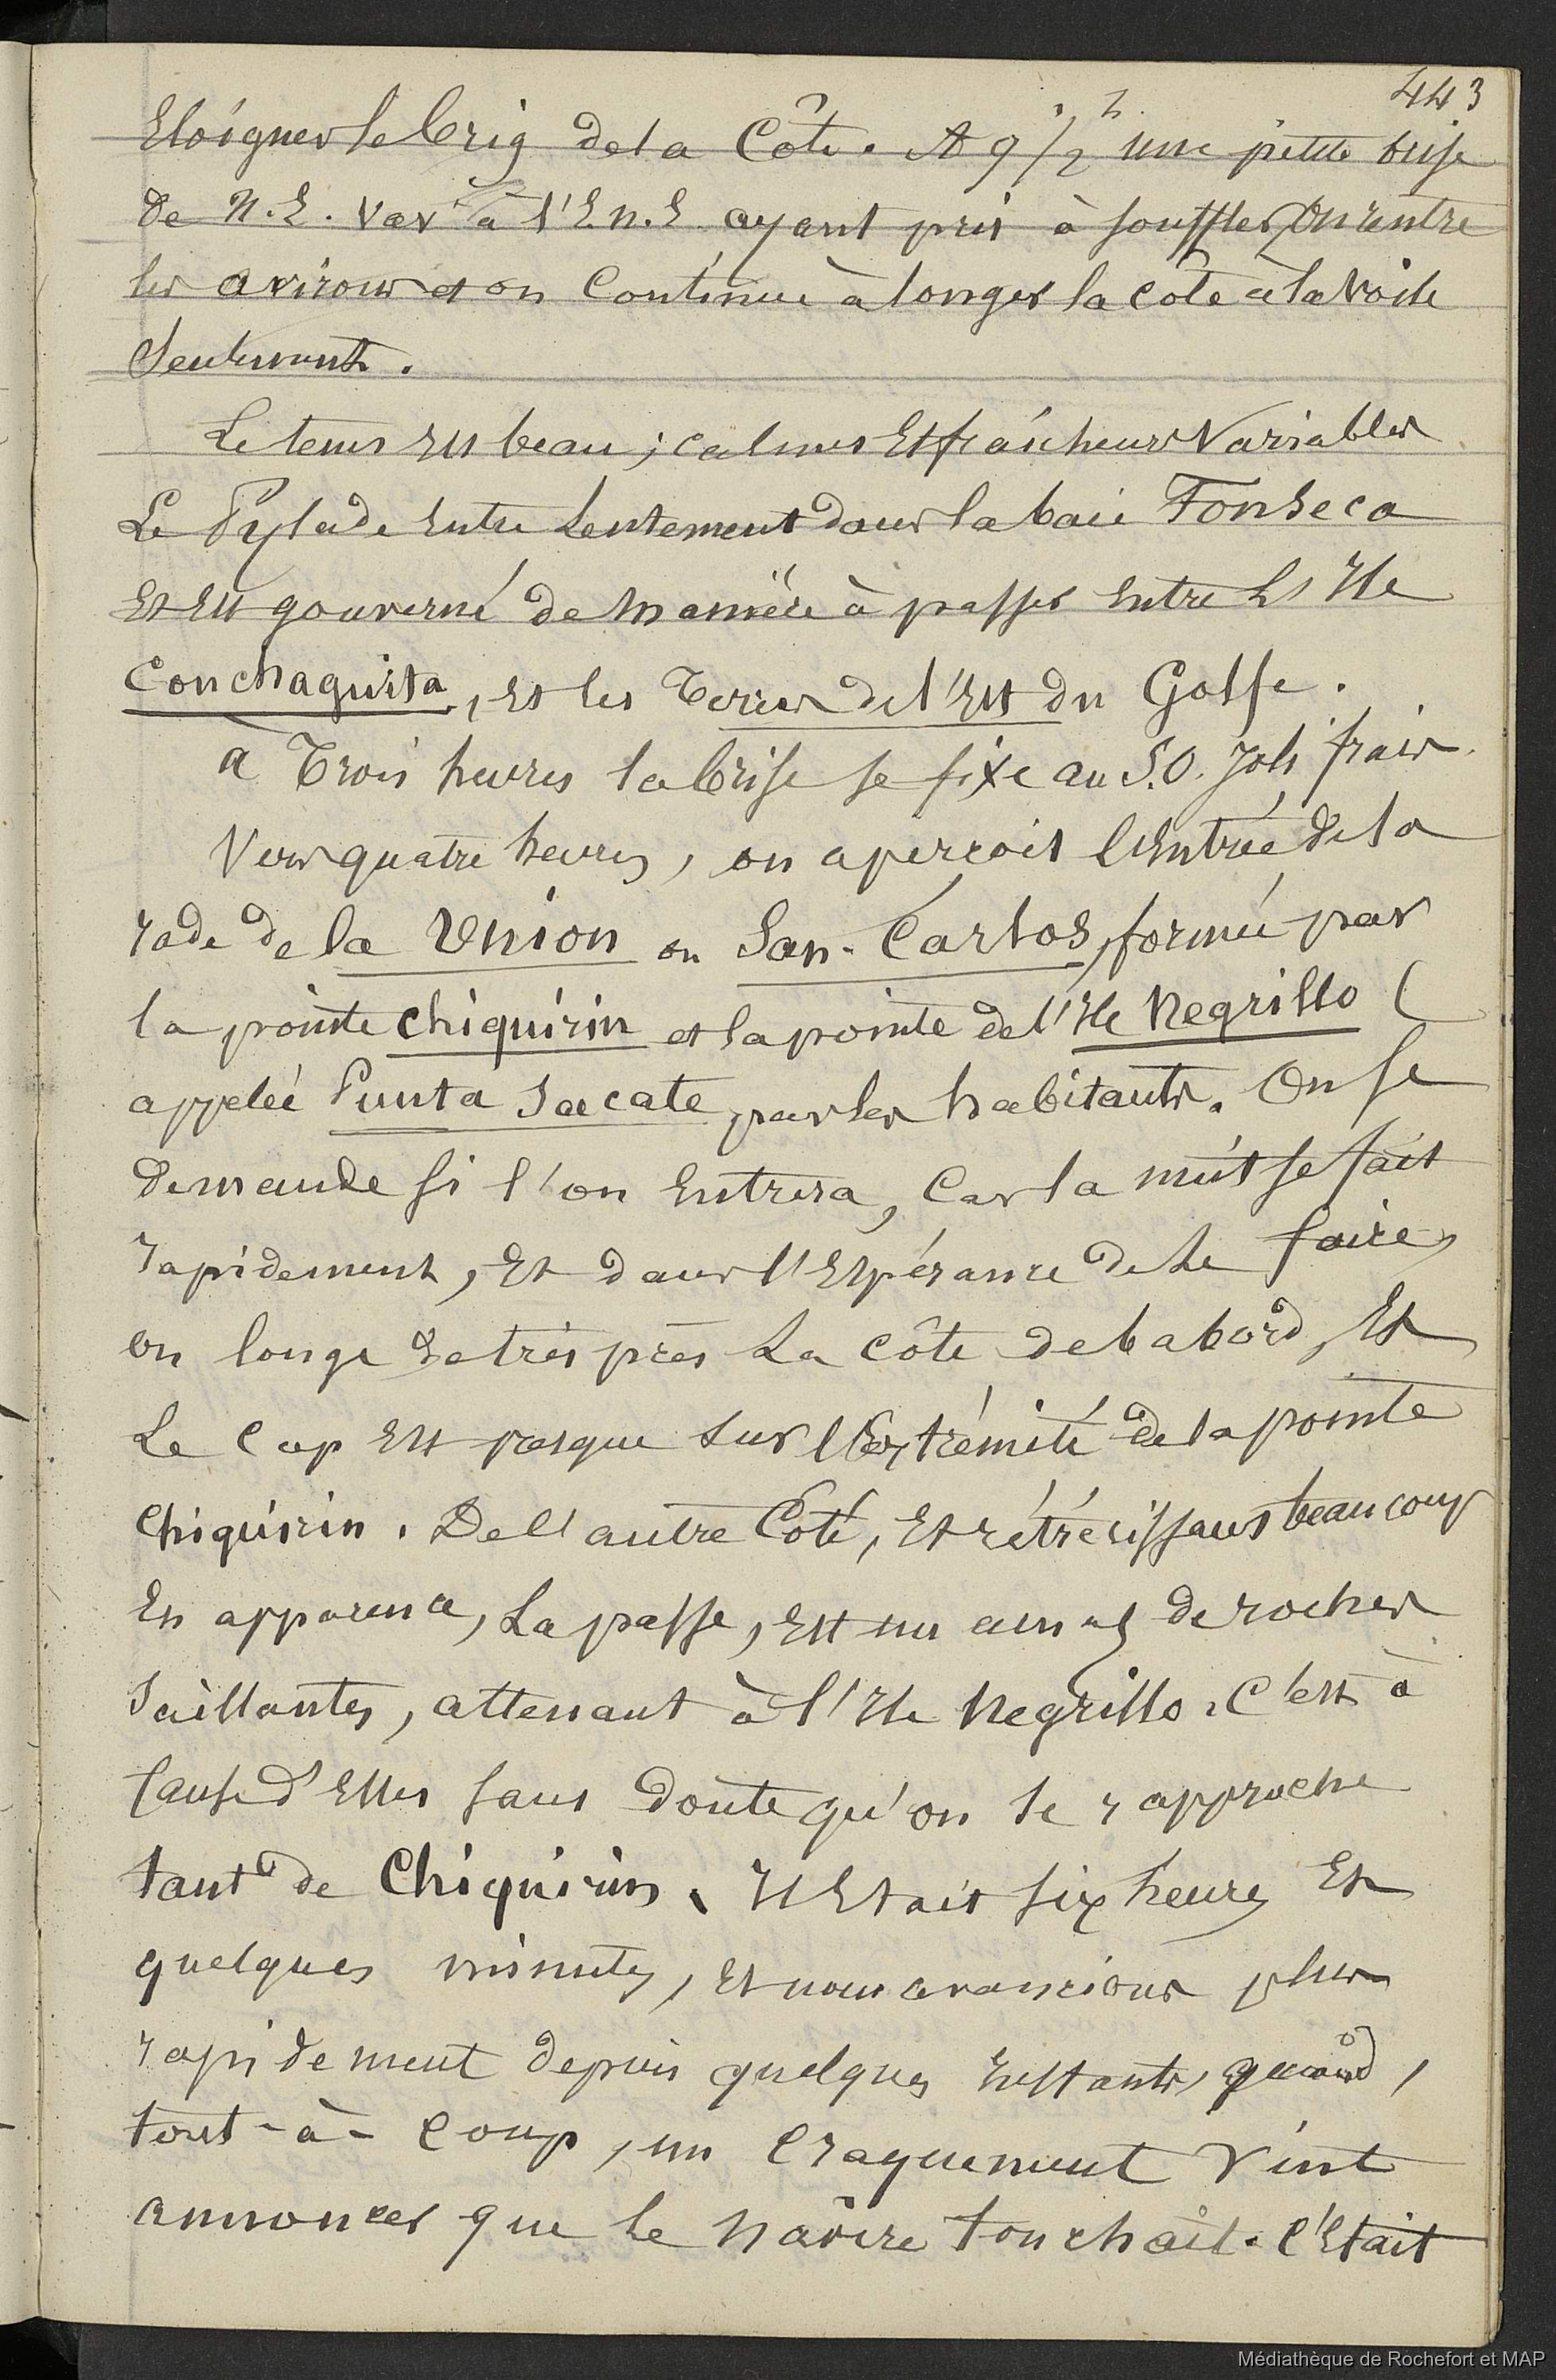 443
Eloigner le brig de la Côte. A 9 1/2 h une petite brise
de N.E. var à l'E.N.E. ayant pris à souffler, on rentre
les avirons et on continue à longer la côte à la voile
seulement.
Le tems est beau ; calmes et fraîcheurs variables
Le Pylade entre lentement dans la baie Fonseca
et est gouverné de manière à passer entre l'Ile
Conchaguita, et les terres de l'Est du Golfe.
à trois heures la brise se fixe au S.O. joli frais
Vers quatre heures, on aperçoit l'Entrée de la
rade de la Union ou San-Carlos, formée par
la pointe chiquirin et la pointe de l'Ile Negrillo (
appelée Punta Sacate par les habitants. On se
demande si l'on entrera, car la nuit se fait
rapidement, Et dans l'Espérance de le faire,
on longe de très près la côte de babord, Et
Le cap Est presque sur l'Extrémité de la pointe
chiquirin. De l'autre Côté, Et rétrécissant beaucoup
En apparence, La passe, Est un amas de roches
saillantes, attenant à l'Ile Negrillo. C'est à
cause d'Elles sans doute qu'on se rapproche
tant de Chiquirin. Il Etait six heures Et
quelques minutes, et nous avancions plus
rapidement depuis quelques Instants, quand,
tout-à-coup, un craquement vint
annoncer que le navire touchait. C'Etait
Médiathèque de Rochefort et MAP